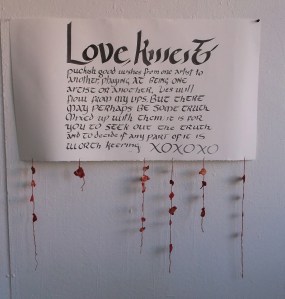 Love, Kmest
puckish good wishes from one artist to
another playing AT BEING ONE
ARTIST OR ANOTHER. LIES WILL
flow from my LIPS. BUT THERE
MAY PERHAPS BE SOME TRUTH
MIXED UP WITH THEM. IT IS FOR
YOU TO SEEK OUT THE TRUTH
AND TO DECIDE IF ANY PART OF IT IS
WORTH KEEPING XOXOXO